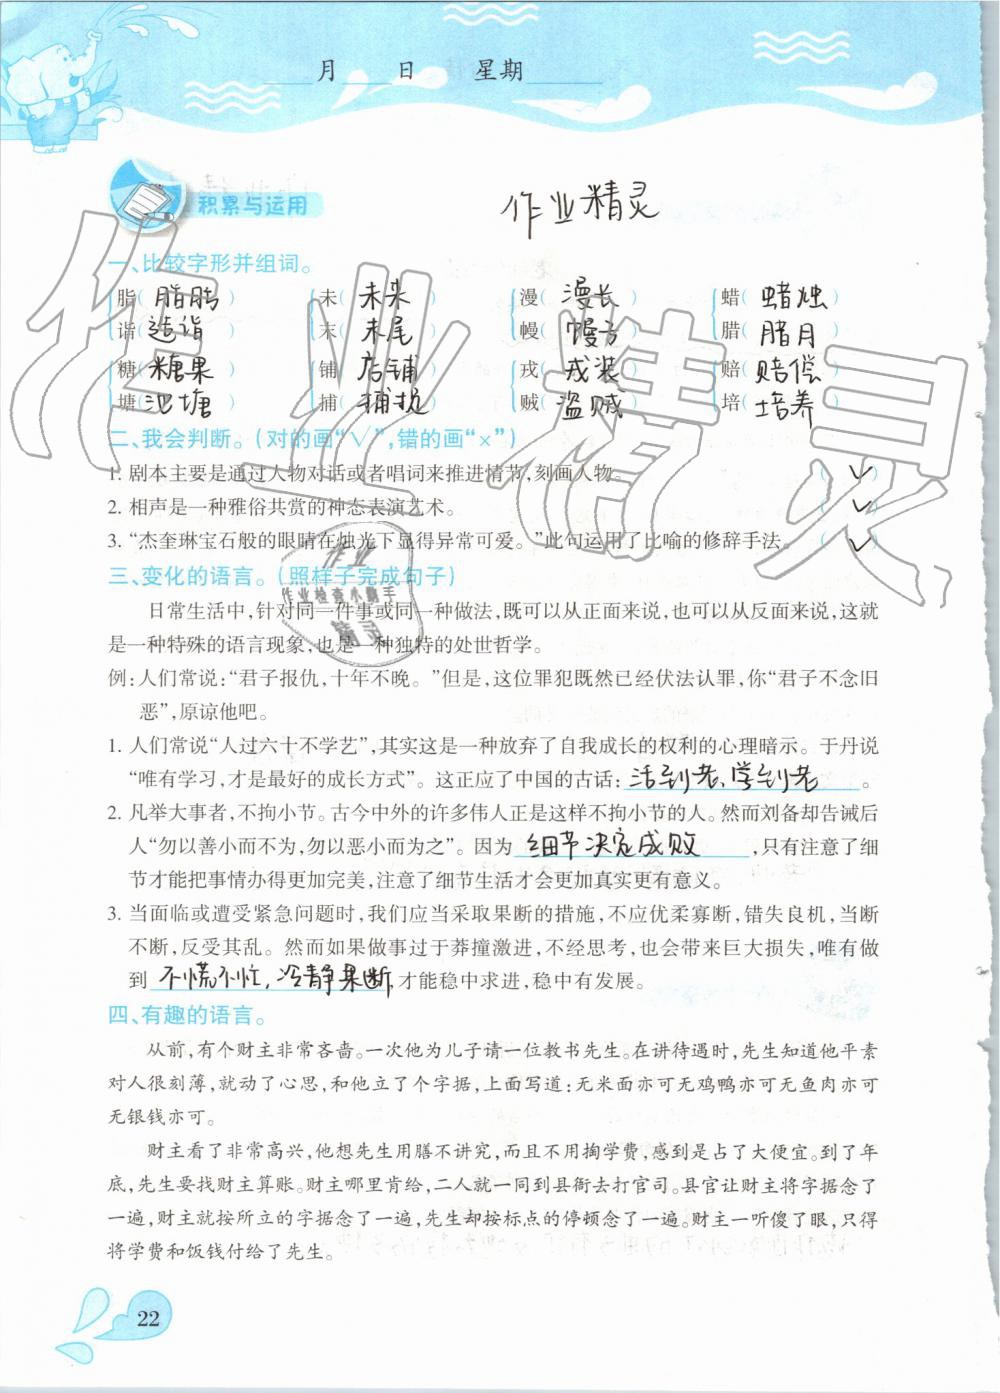 月 日 星期
积累与运用
作业精灵
一、比较字形并组词。
脂( 脂肪 ) 未( 未来 ) 漫( 漫长 ) 蜡( 蜡烛 )
诣( 造诣 ) 末( 末尾 ) 幔( 幔方 ) 腊( 腊月 )
糖( 糖果 ) 铺( 店铺 ) 戎( 戎装 ) 赔( 赔偿 )
塘( 池塘 ) 捕( 捕抗 ) 贼( 盗贼 ) 培( 培养 )
二、我会判断。(对的画“√”,错的画“×”)
1. 剧本主要是通过人物对话或者唱词来推进情节,刻画人物。 ( √ )
2. 相声是一种雅俗共赏的神态表演艺术。 ( √ )
3. “杰奎琳宝石般的眼睛在烛光下显得异常可爱。”此句运用了比喻的修辞手法。 ( √ )
三、变化的语言。(照样子完成句子)
日常生活中,针对同一件事或同一种做法,既可以从正面来说,也可以从反面来说,这就
是一种特殊的语言现象,也是一种独特的处世哲学。
例:人们常说:“君子报仇,十年不晚。”但是,这位罪犯既然已经伏法认罪,你“君子不念旧
恶”,原谅他吧。
1. 人们常说“人过六十不学艺”,其实这是一种放弃了自我成长的权利的心理暗示。于丹说
“唯有学习,才是最好的成长方式”。这正应了中国的古话: 活到老,学到老 。
2. 凡举大事者,不拘小节。古今中外的许多伟人正是这样不拘小节的人。然而刘备却告诫后
人“勿以善小而不为,勿以恶小而为之”。因为 细节决定成败 ,只有注意了细
节才能把事情办得更加完美,注意了细节生活才会更加真实更有意义。
3. 当面临或遭受紧急问题时,我们应当采取果断的措施,不应优柔寡断,错失良机,当断
不断,反受其乱。然而如果做事过于莽撞激进,不经思考,也会带来巨大损失,唯有做
到 不慌不忙,冷静果断 ,才能稳中求进,稳中有发展。
四、有趣的语言。
从前,有个财主非常吝啬。一次他为儿子请一位教书先生。在讲待遇时,先生知道他平素
对人很刻薄,就动了心思,和他立了个字据,上面写道:无米面亦可无鸡鸭亦可无鱼肉亦可
无银钱亦可。
财主看了非常高兴,他想先生用膳不讲究,而且不用掏学费,感到是占了大便宜。到了年
底,先生要找财主算账。财主哪里肯给,二人就一同到县衙去打官司。县官让财主将字据念了
一遍,财主就按所立的字据念了一遍,先生却按标点的停顿念了一遍。财主一听傻了眼,只得
将学费和饭钱付给了先生。
22
作业精灵
作业
作业检查小助手
精灵